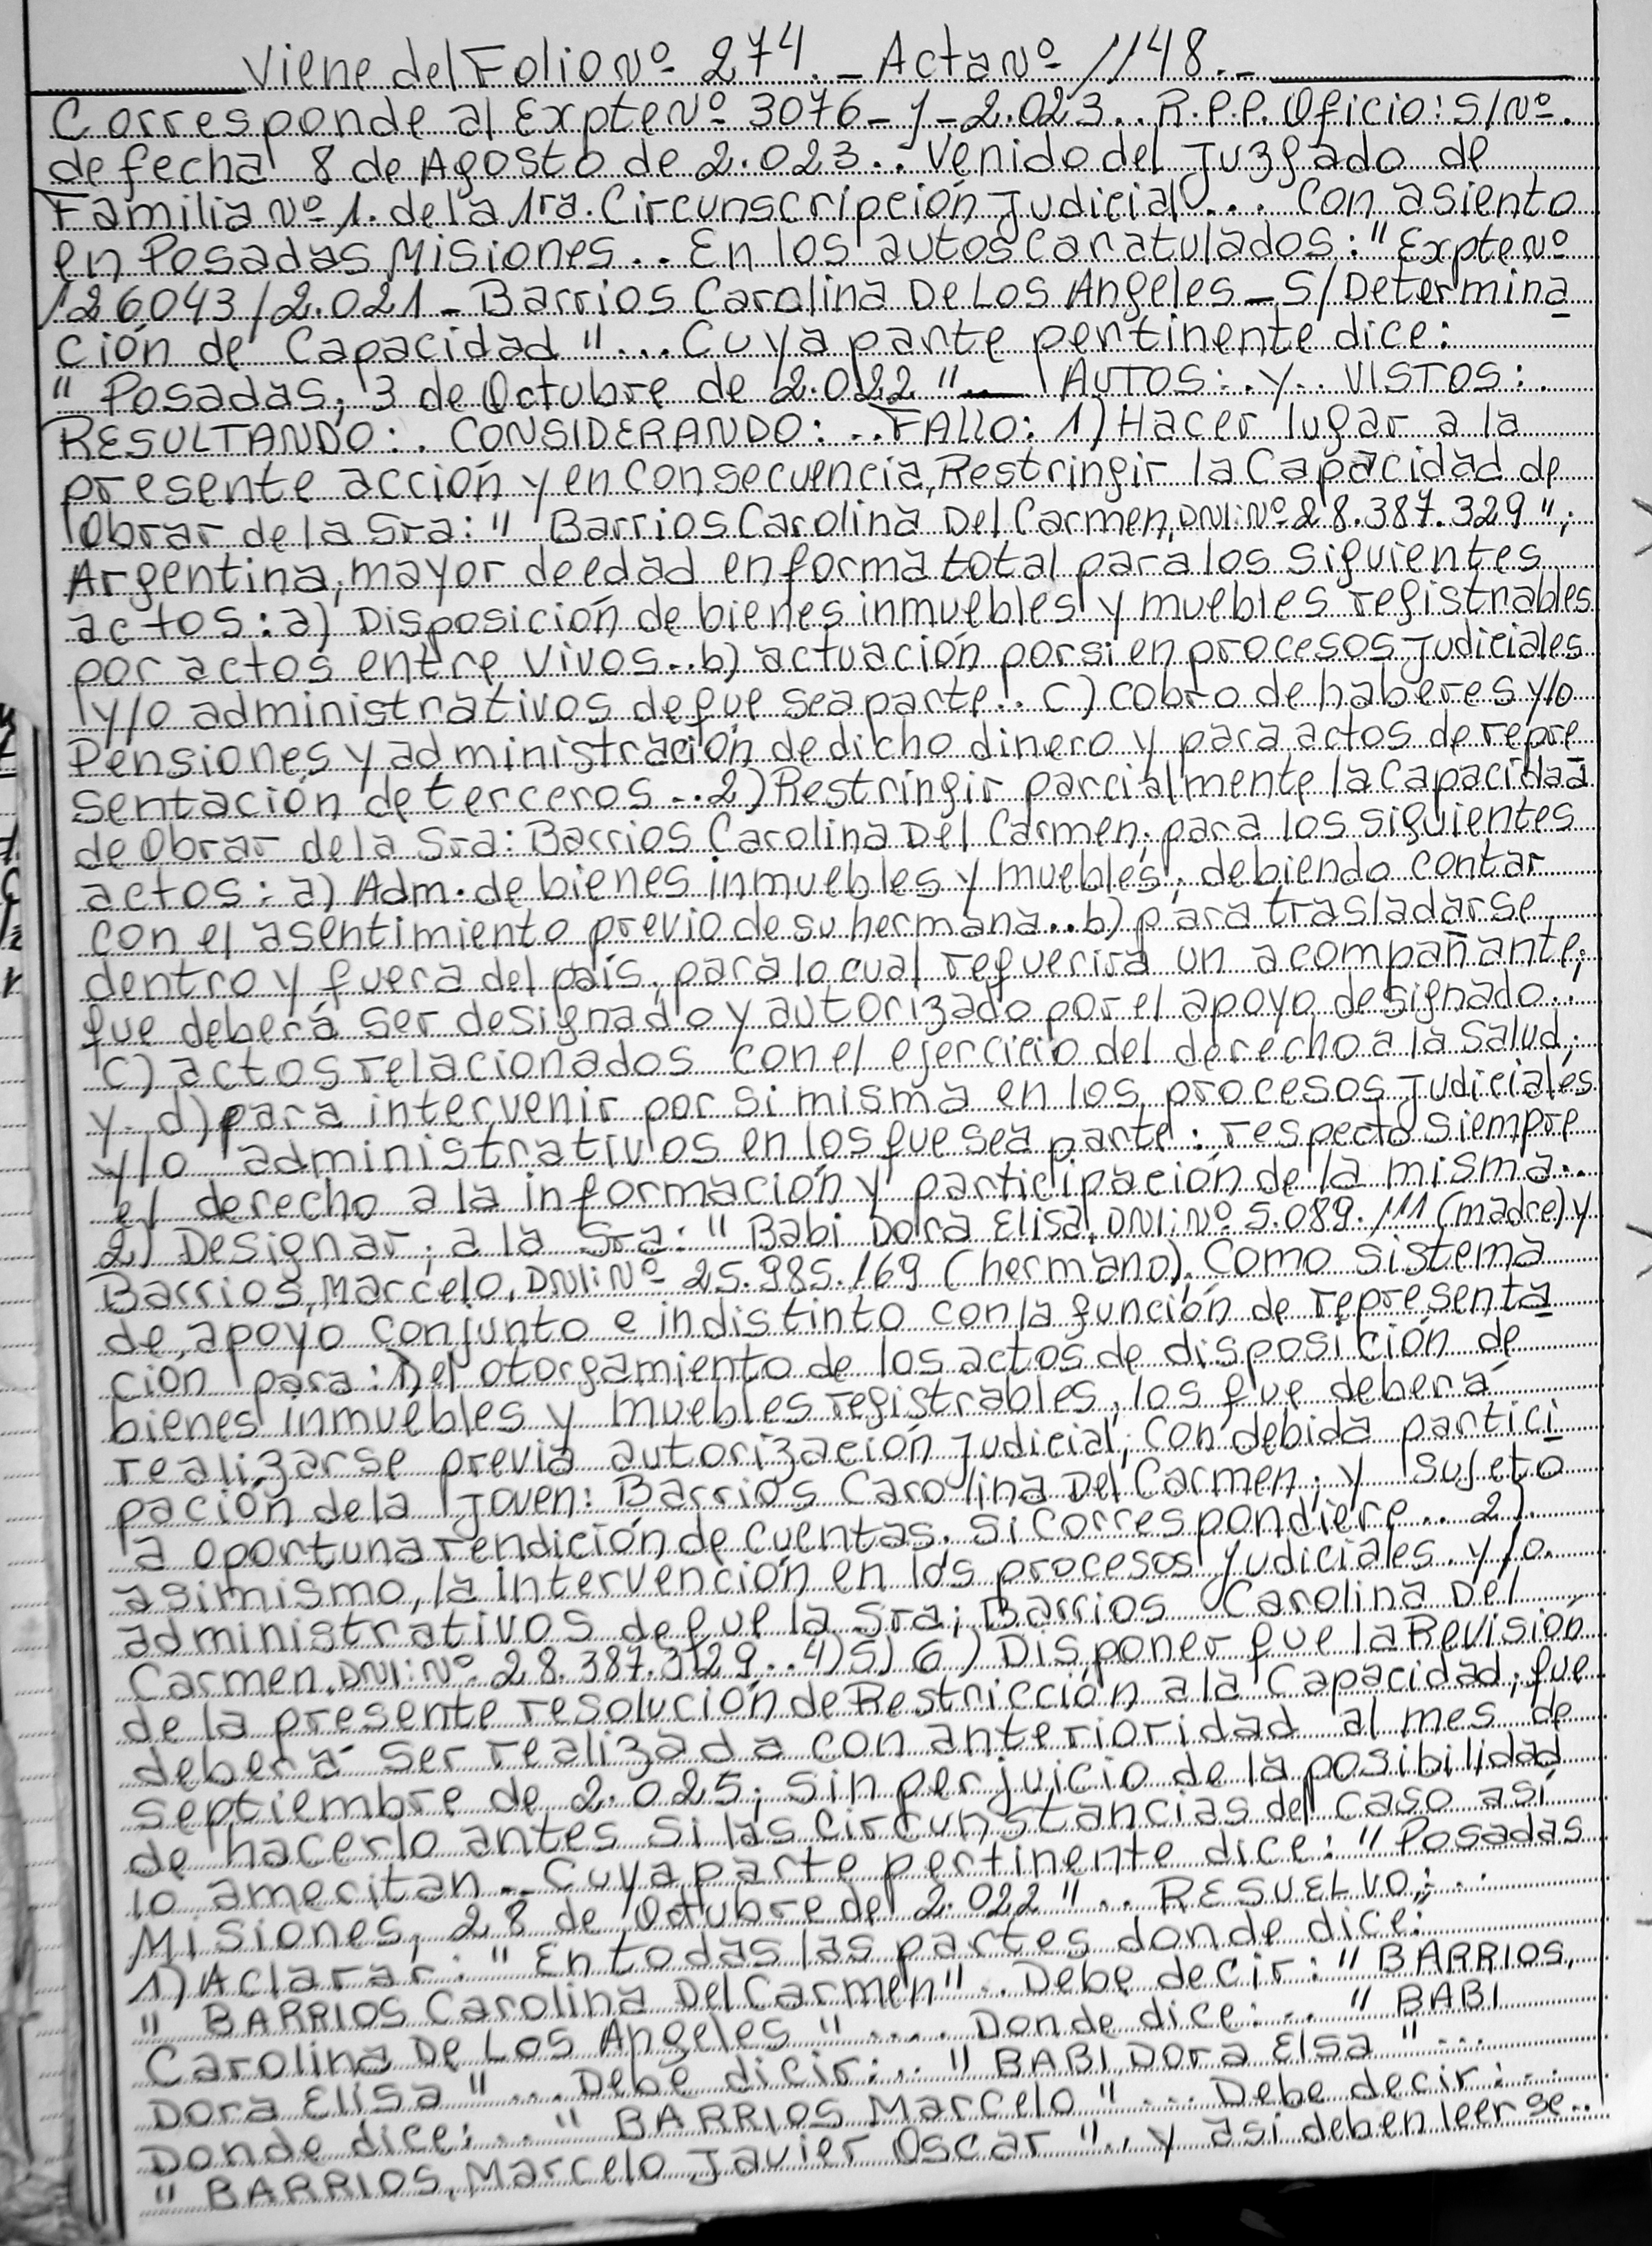 Viene del Folio Nº 274. - Acta Nº 1148..
Corresponde al Expte Nº 3076 - Y - 2.023.. R.P.P. Oficio: S/Nº.
de fecha 8 de Agosto de 2.023.. Venido del Juzgado de
Familia Nº 1. de la 1ra. Circunscripción Judicial... Con asiento
en Posadas Misiones.. En los autos caratulados: "Expte Nº
126043/2.021 - Barrios Carolina De Los Angeles - S/Determina
ción de Capacidad"... Cuya parte pertinente dice:
"Posadas, 3 de Octubre de 2.022".. AUTOS:. Y.. VISTOS:.
RESULTANDO:. CONSIDERANDO:.. FALLO: 1) Hacer lugar a la
presente acción y en Consecuencia, Restringir la Capacidad de
Obrar de la Sra: "Barrios Carolina Del Carmen, DNI: Nº 28.387.329";
Argentina, mayor de edad en forma total para los siguientes
actos: a) Disposición de bienes inmuebles y muebles registrables
por actos entre vivos.. b) actuación por si en procesos Judiciales
y/o administrativos de que sea parte.. c) cobro de haberes y/o
Pensiones y administración de dicho dinero y para actos de repre
sentación de terceros.. 2) Restringir parcialmente la Capacidad
de Obrar de la Sra: Barrios Carolina Del Carmen; para los siguientes
actos: a) Adm. de bienes inmuebles y muebles; debiendo contar
con el asentimiento previo de su hermana.. b) para trasladarse
dentro y fuera del país, para lo cual requerirá un acompañante;
que deberá ser designado y autorizado por el apoyo designado..
c) actos relacionados con el ejercicio del derecho a la Salud;
y. d) para intervenir por si misma en los procesos Judiciales
y/o administrativos en los que sea parte: respecto siempre
el derecho a la información y participación de la misma..
2) Designar; a la Sra: "Babi Dora Elisa, DNI: Nº 5.089.111 (madre) y
Barrios, Marcelo, DNI: Nº 25.985.169 (hermano), Como Sistema
de apoyo conjunto e indistinto con la función de representa
ción para: 1) el otorgamiento de los actos de disposición de
bienes inmuebles y muebles registrables, los que deberá
realizarse previa autorización Judicial; Con debida partici
pación de la Joven: Barrios Carolina Del Carmen; y Sujeto
a oportuna rendición de cuentas. Si Correspondiere.. 2)
asimismo, la intervención en los procesos Judiciales. y/o.
administrativos de que la Sra; Barrios Carolina Del
Carmen. DNI: Nº 28.387.329.. 4) 5) 6) Disponer que la Revisión
de la presente resolución de Restricción a la Capacidad; que
deberá ser realizada con anterioridad al mes de
septiembre de 2.025; sin perjuicio de la posibilidad
de hacerlo antes si las Circunstancias del caso así
lo ameritan.. Cuya parte pertinente dice: "Posadas
Misiones, 28 de Octubre del 2.022".. RESUELVO:..
1) Aclarar: "En todas las partes donde dice:
"BARRIOS Carolina Del Carmen".. Debe decir: "BARRIOS,
Carolina De Los Angeles".... Donde dice:.. "BABI
Dora Elisa"... Debe dicir:.. "BABI, Dora Elsa"...
Donde dice:.. "BARRIOS Marcelo"... Debe decir:...
"BARRIOS, Marcelo Javier Oscar".., y así deben leerse..